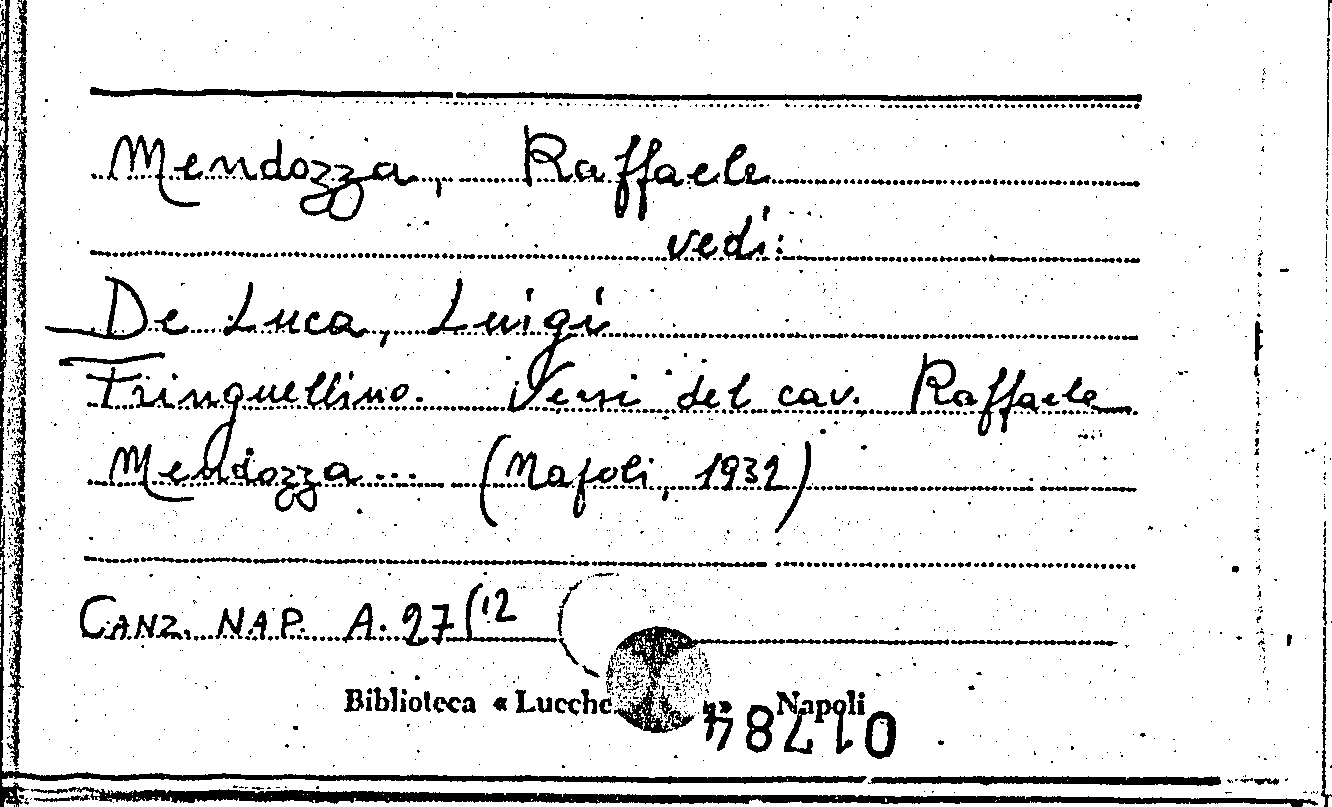 Mendozza, Raffaele
vedi:
De Luca, Luigi
Fringuellino. Versi del cav. Raffaele
Mendozza... (Napoli, 1932)
CANZ. NAP. A. 27/12
Biblioteca « Lucche » Napoli
01784